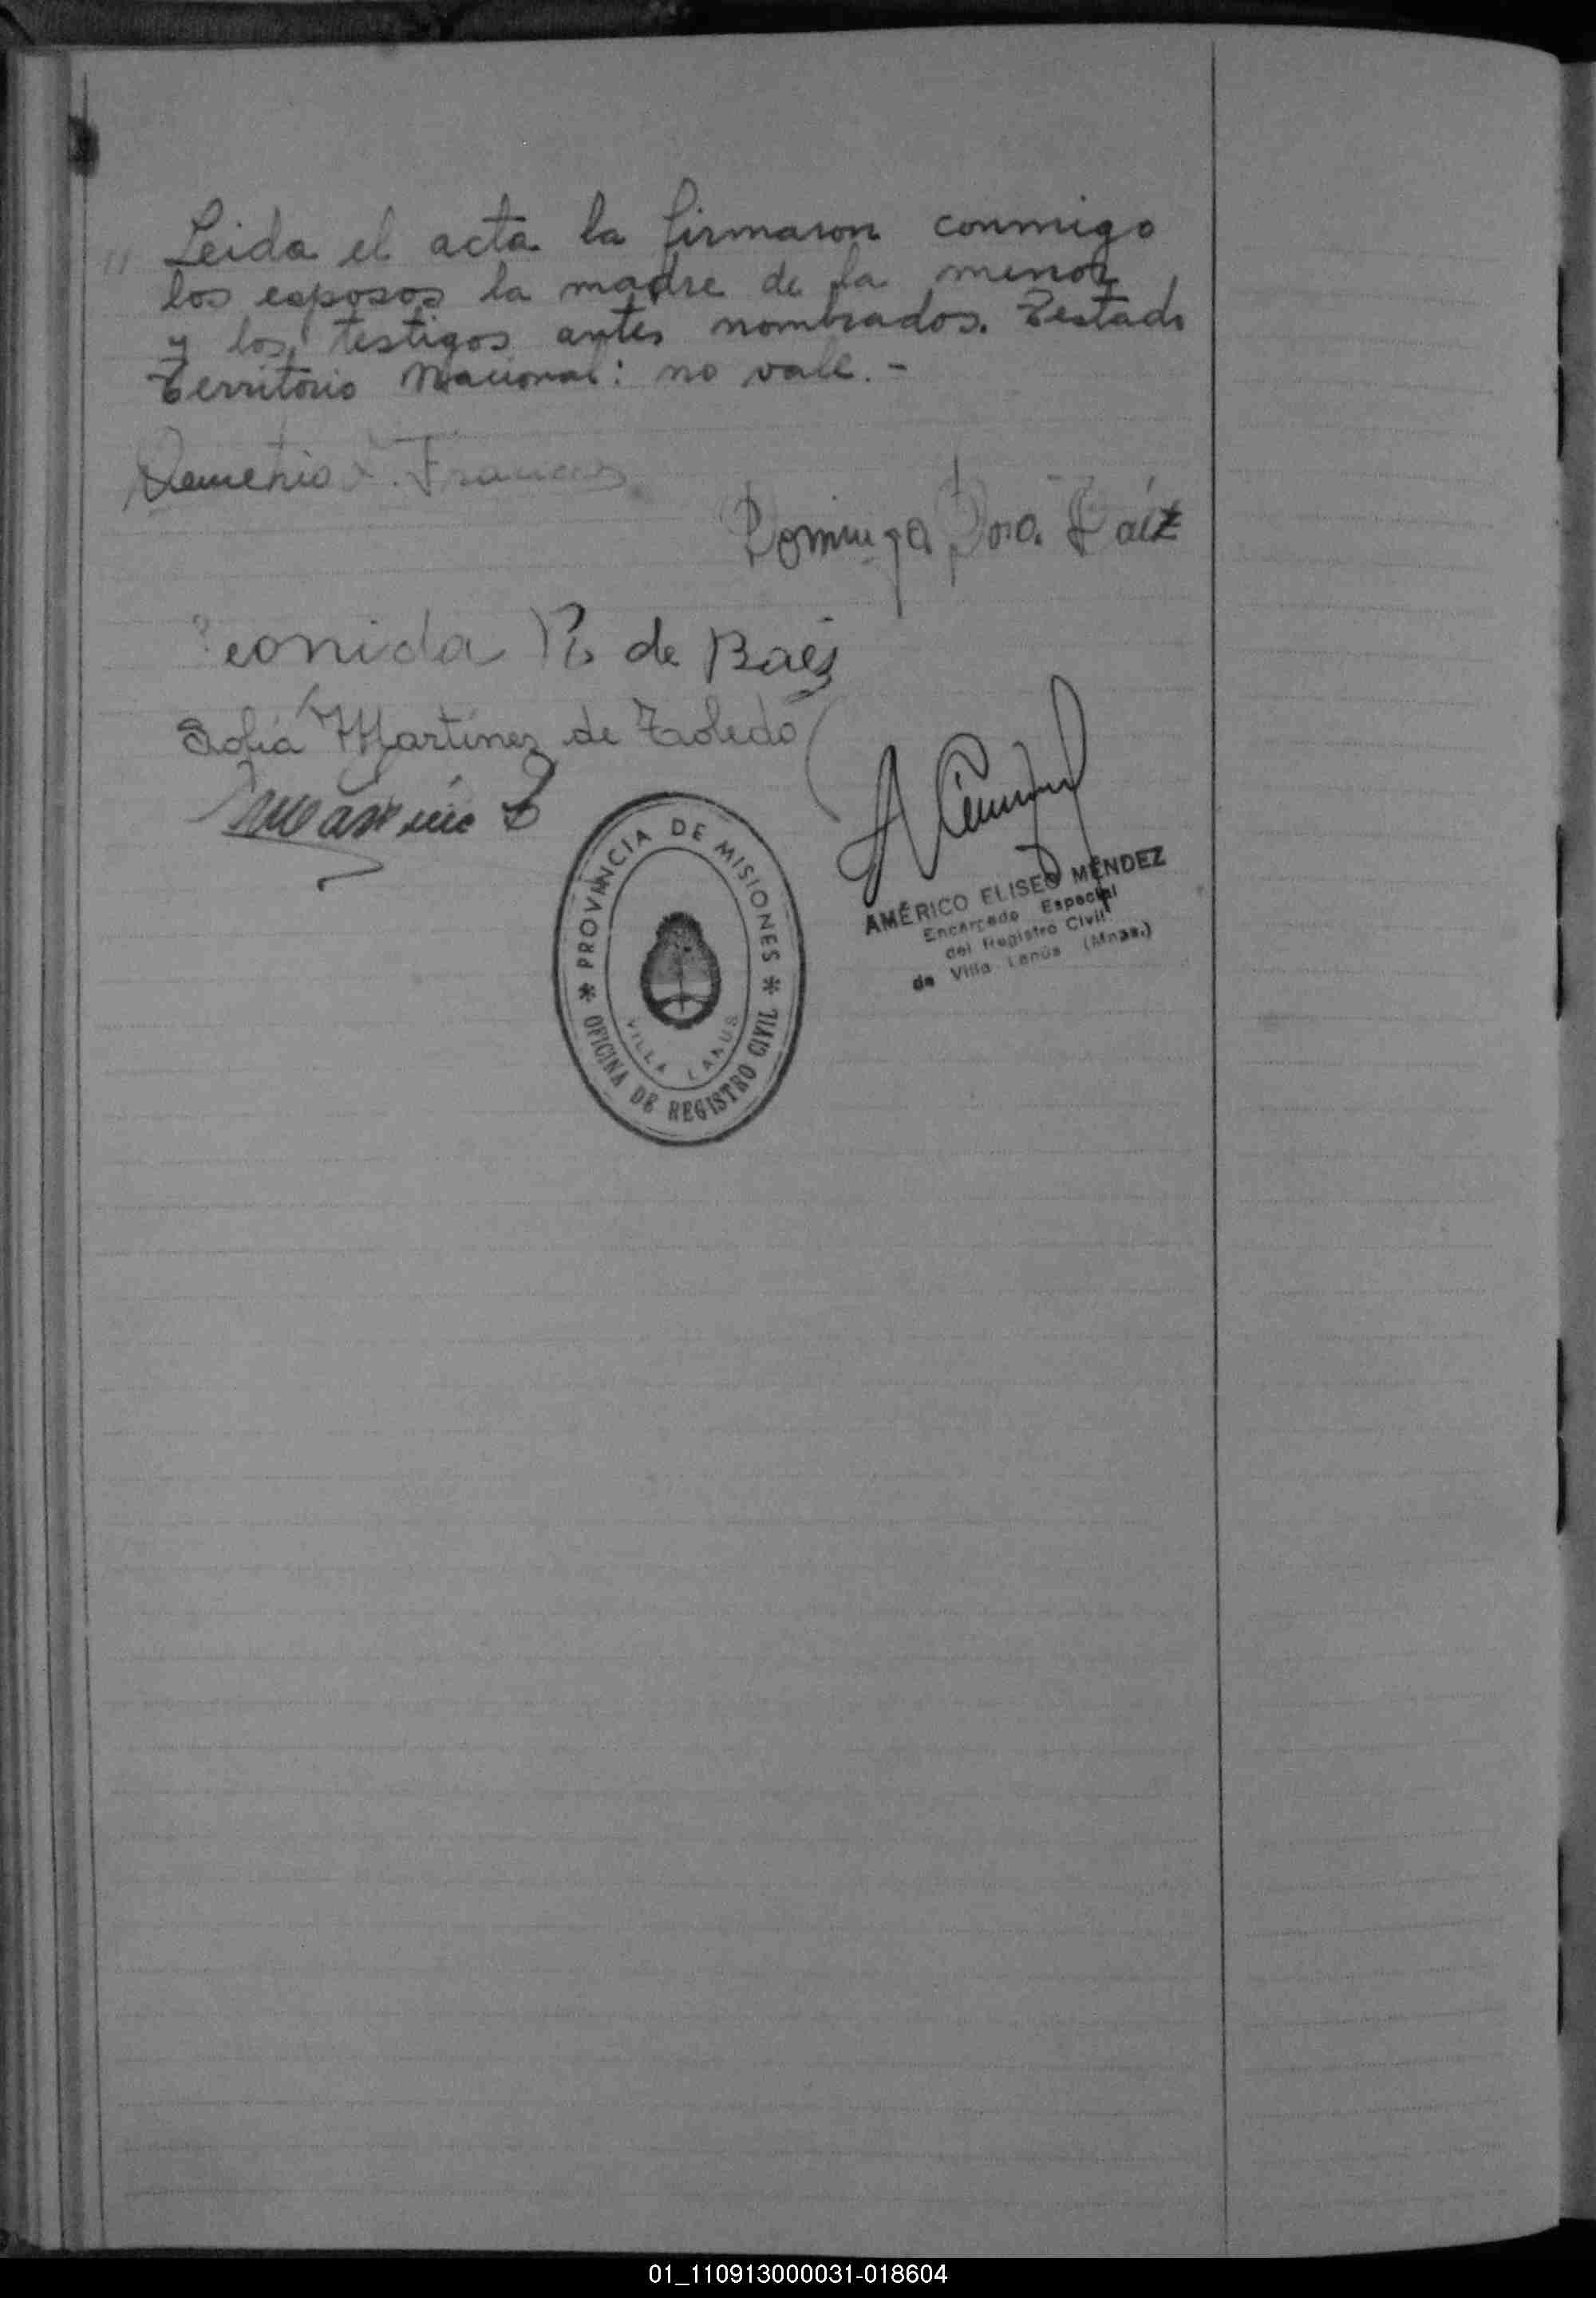 " Leida el acta la firmaron conmigo
los esposos la madre de la menor,
y los testigos antes nombrados. Testado
Territorio Nacional: no vale.-
Dominga Báez
Leonida R. de Baés
Sofiá Martinez de Toledo
PROVINCIA DE MISIONES
OFICINA DE REGISTRO CIVIL
VILLA LANUS
AMÉRICO ELISEO MÉNDEZ
Encargado Especial
del Registro Civil
de Villa Lanús (Mnes.)
01_110913000031-018604